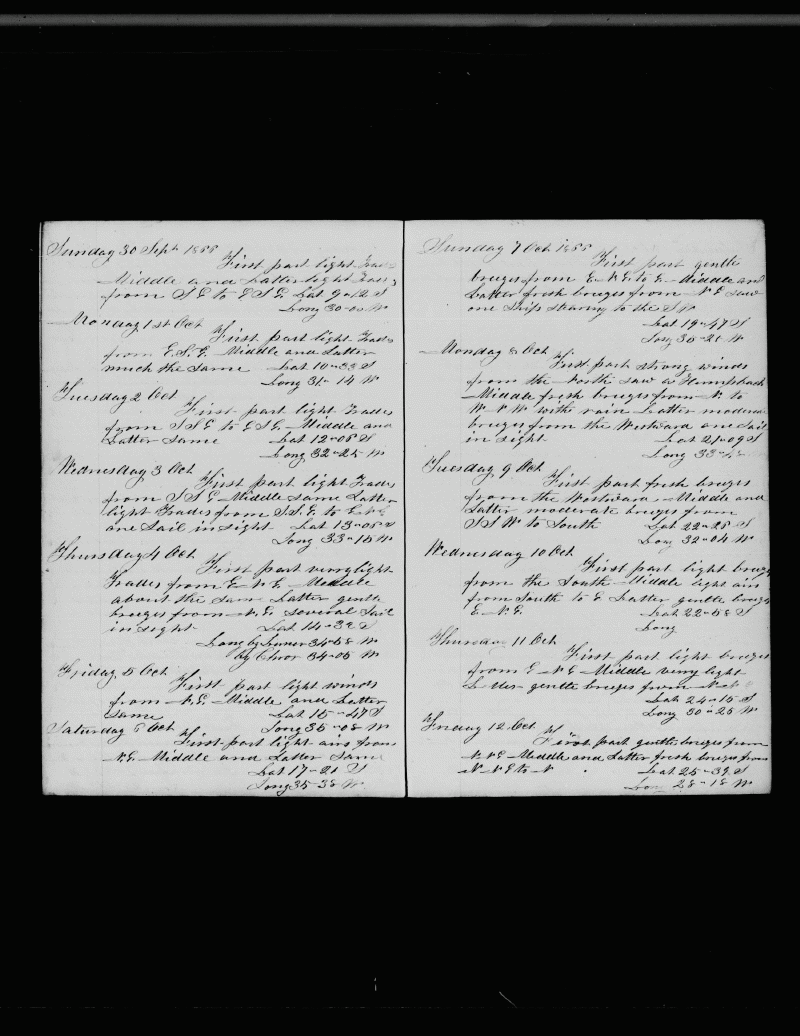 Sunday 30 Sept 1888
First part light Trades
Middle and Latter light Trades
from S E to E S E Lat 9-12 S
Long 30-00 W
Monday 1st Oct
First part light Trades
from E.S.E. Middle and Latter
much the same Lat 10-33 S
Long 31-14 W
Tuesday 2 Oct
First part light Trades
from S S E to E S E Middle and
Latter same Lat 12-06 S
Long 32-25 W
Wednesday 3 Oct
First part light Trades
from S S E Middle same Latter
light Trades from S.S.E. to
one Sail in sight Lat 13-06 S
Long 33-15 W
Thursday 4 Oct
First part very light
Trades from E N E. Middle
about the same Latter gentle
breezes from N.E. several Sail
in sight Lat 14-32 S
Long by Lunar 34-58 W
by Chror 34-05 W
Friday 5 Oct
First part light winds
from N.E. Middle and Latter
Same Lat 15-47 S
Long 35-08 W
Saturday 6 Oct
First part light airs from
N.E. Middle and Latter same
Lat 17-21 S
Long 35-38 W
Sunday 7 Oct 1888
First part gentle
breezes from E N E to E Middle and
Latter fresh breezes from N E saw
one Ship stearing to the S W
Lat 19-47 S
Long 35-21 W
Monday 8 Oct
First part strong winds
from the North saw a Humpback
Middle fresh breezes from N. to
W N W with rain Latter moderate
breezes from the Westward one Sail
in sight Lat 21-09 S
Long 33-
Tuesday 9 Oct
First part fresh breezes
from the Westward Middle and
Latter moderate breezes from
S S W to South Lat 22-28 S
Long 32-04 W
Wednesday 10 Oct
First part light breezes
from the South Middle light airs
from South to E Latter gentle breezes
E N.E. Lat 22-58 S
Long
Thursday 11 Oct
First part light breezes
from E N E Middle very light
Latter gentle breezes from N.
Lat 24-15 S
Long 30-25 W
Friday 12 Oct
First part gentle breezes from
N N E Middle and Latter fresh breezes from
N N E to N Lat 25-39 S
Long 28-18 W